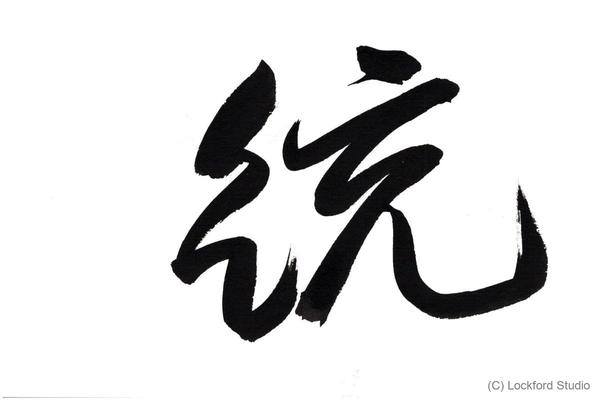 統
(C) Lockford Studio